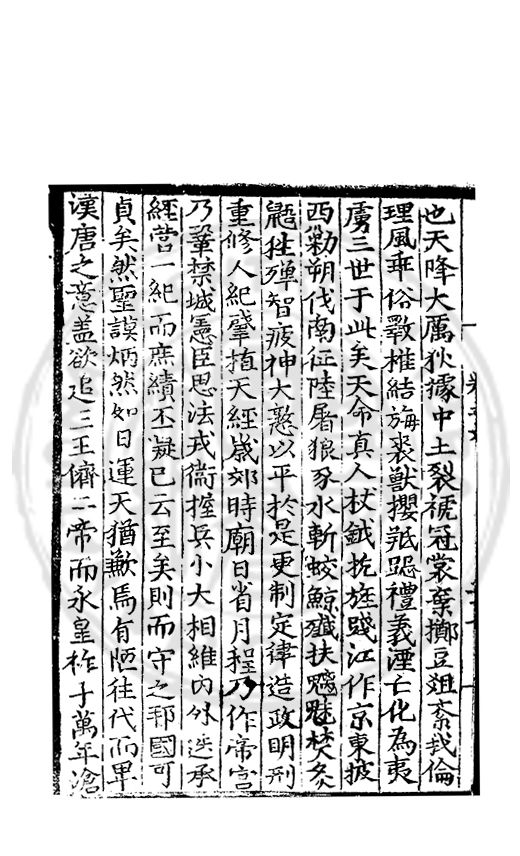 也天降大厲狄據中土裂褫冠裳棄擲豆俎紊我倫
理風乖俗斁椎結旃裘獸攫羝踞禮義湮亡化為夷
虜三世于此矣天命真人杖鉞抗旌踐江作京東披
西勦朔伐南征陸屠狼豕水斬蛟鯨殲扶魑魅焚炙
鼯狌殫智疲神大憝以平於是更制定律造政明刑
重修人紀肇植天經歲郊時廟日省月程乃作帝宮
乃鞏禁城憲臣思法戎衞握兵小大相維內外迭承
經營一紀而庶績丕凝巳云至矣則而守之邦國可
貞矣然聖謨炳然如日運天猶歉焉有陋往代而卑
漢唐之意蓋欲追三王儕二帝而永皇祚于萬年滄